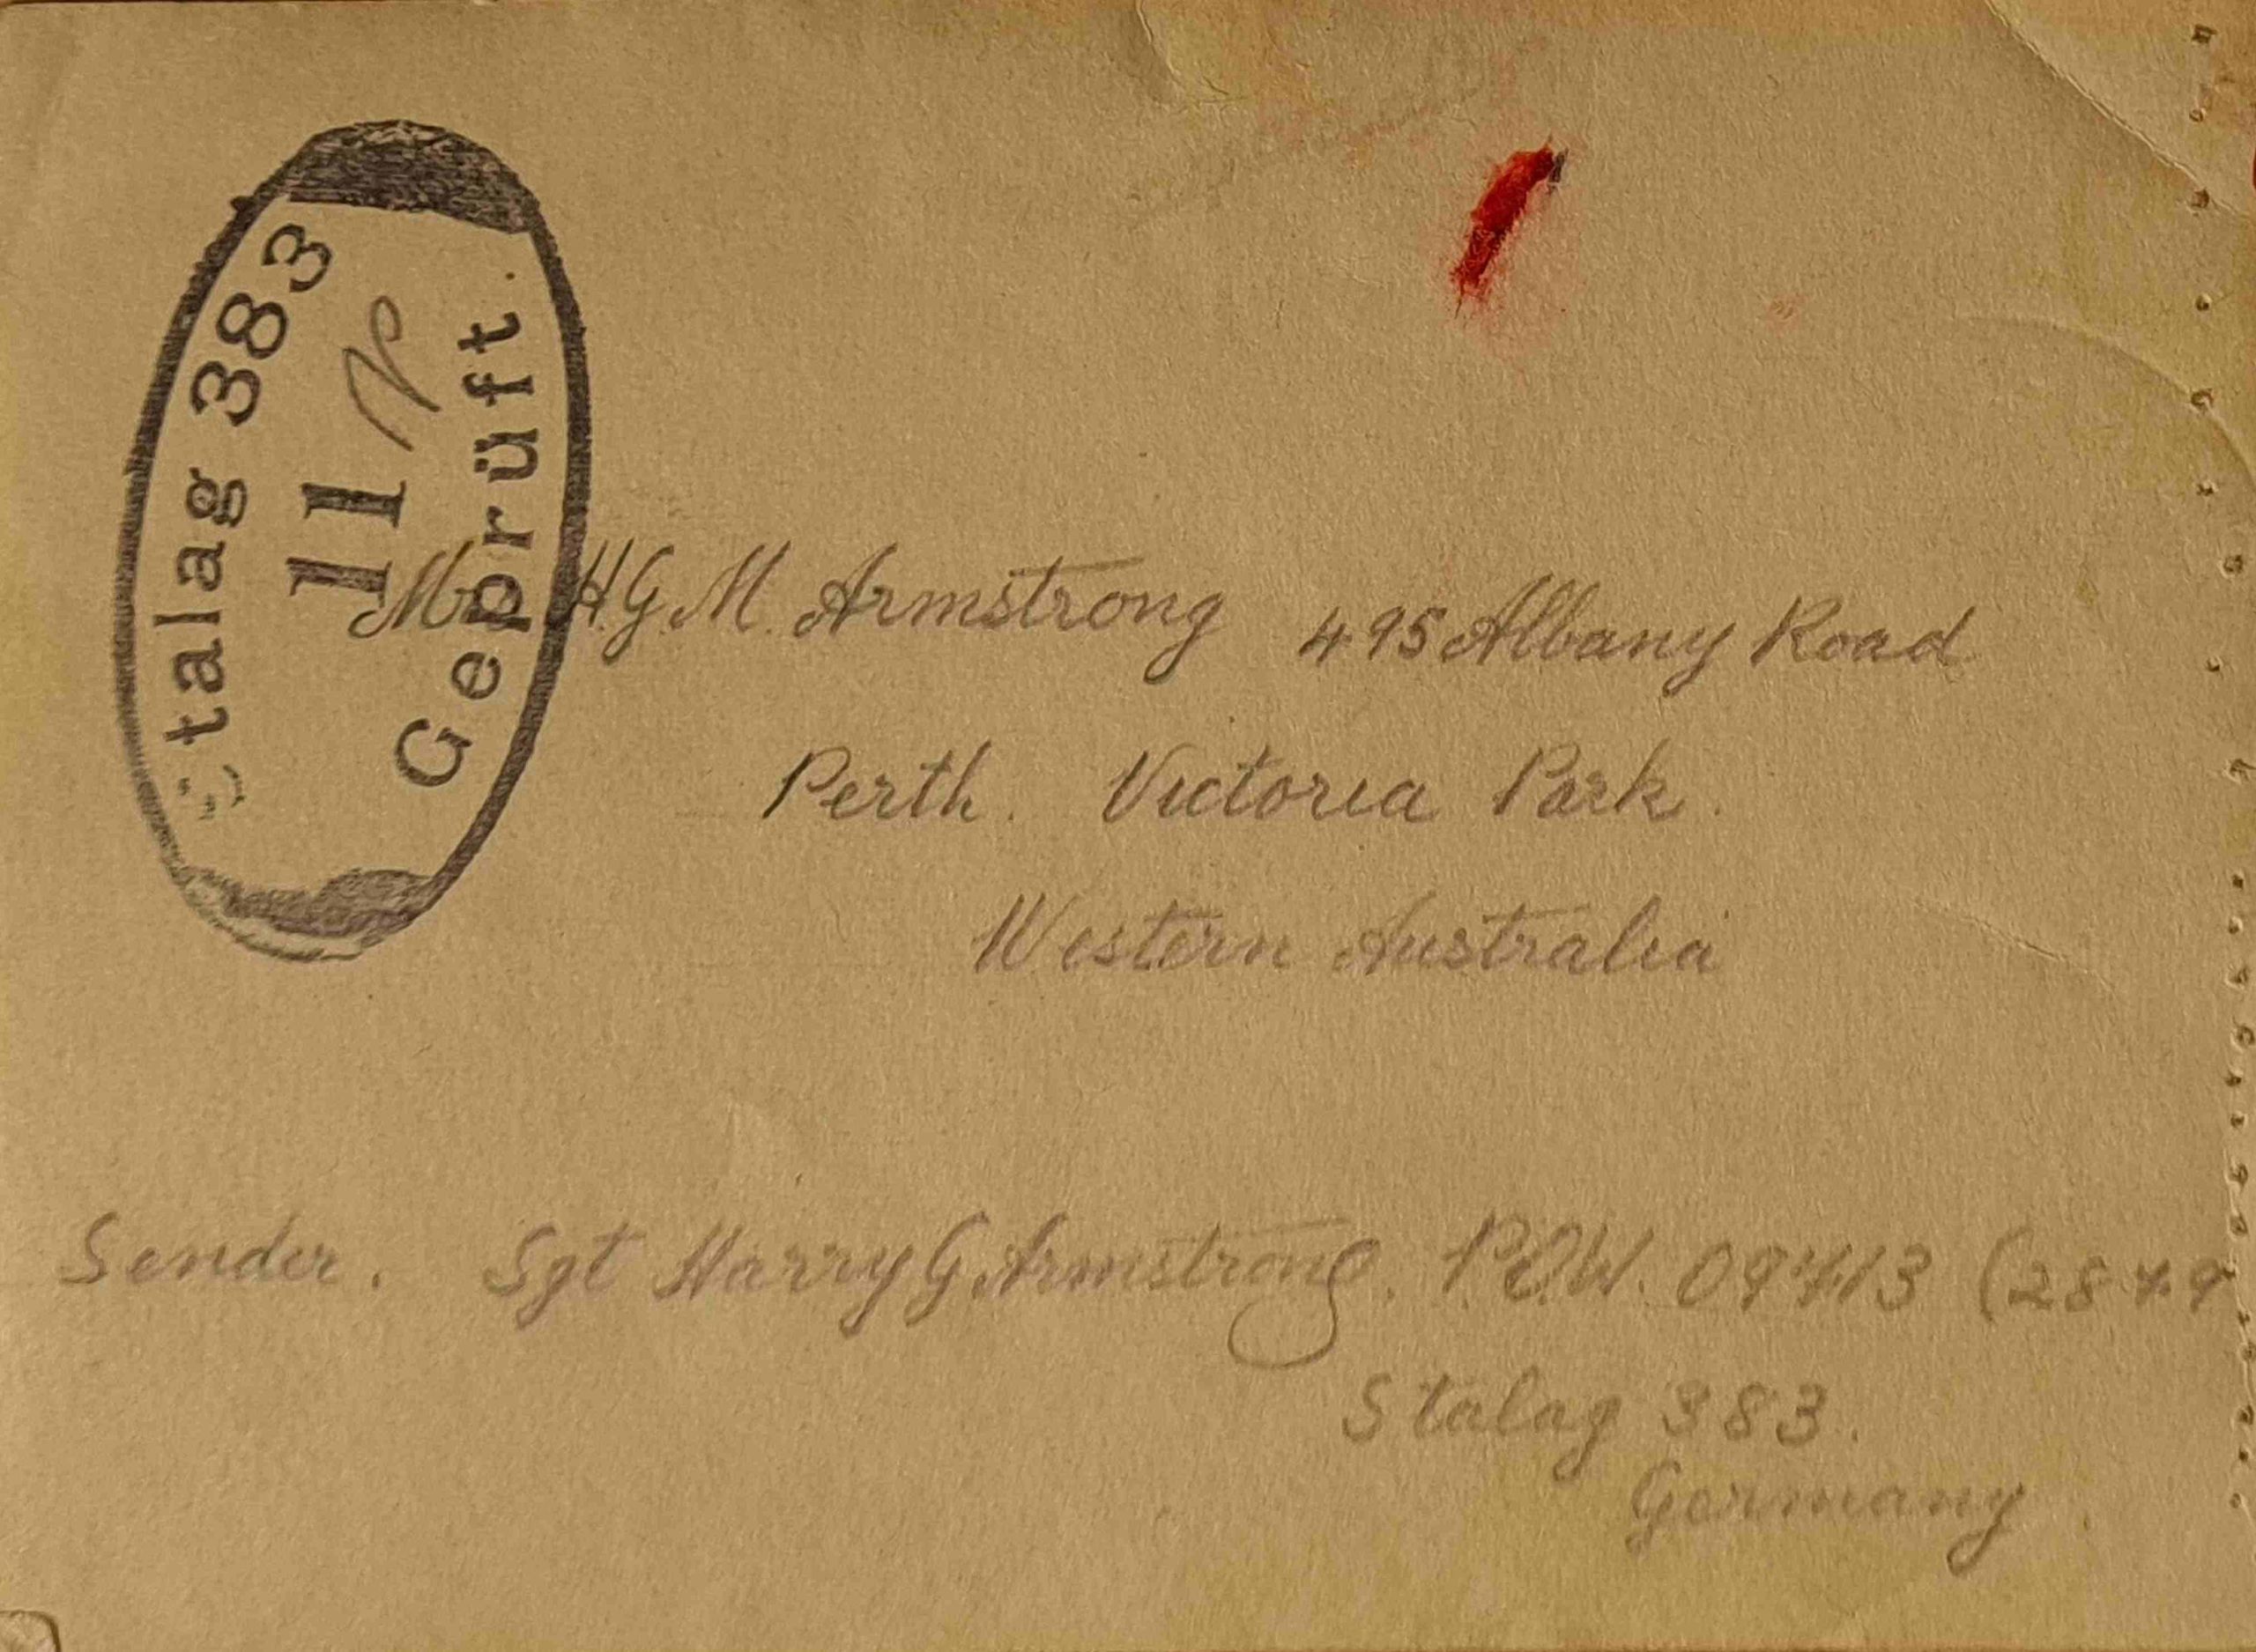 Stalag 383
11
Geprüft.
H.G.M. Armstrong 495 Albany Road
Perth. Victoria Park.
Western Australia
Sender. Sgt Harry G Armstrong. P.O.W. 09413 (2849
Stalag 383.
Germany.